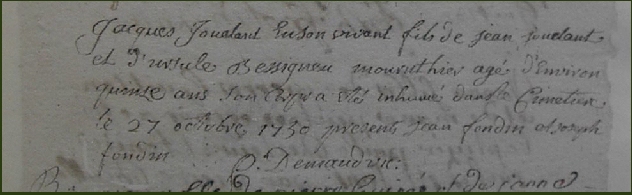 Jacques Joualant Enson vivant fils de jean joualant
et d'ursule Bessiqueu mourut hier agé d'Environ
quinse ans son corps a eté inhumé dans le Cimetiere
le 27 octobre 1730 presents jean fondin et joseph
fondin
de pierre et de jeanne